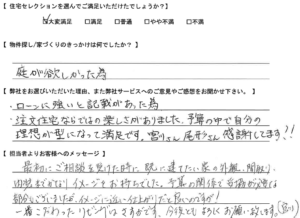 【 住宅セレクションを選んでご満足いただけたでしょうか？ 】
☑大変満足 □満足 □普通 □やや不満 □不満
【 物件探し/家づくりのきっかけは何でしたか？ 】
庭が欲しかった為
【 弊社をお選びいただいた理由、また弊社サービスへのご意見やご感想をお聞かせ下さい。 】
・ローンに強いと記載があった為
・注文住宅ならではの楽しさがありました、予算の中で自分の
理想が型になって満足です。宮川さん 尾形さん 感謝してます!!
【 担当者よりお客様へのメッセージ 】
最初にご相談を受けた時に、既に建てたい家の外観、間取り、
内装まどかなりイメージをお持ちでした。予算の関係で
イメージに近い仕上がりだと思いのですが！
一番こだわった リビングは さすがです、今後とも よろしくお願い致します。(宮川)